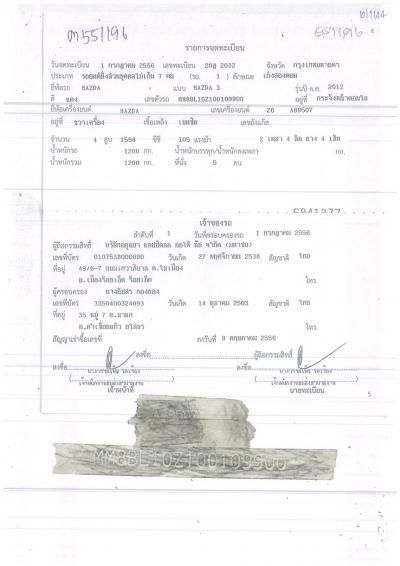 รายการจดทะเบียน
วันจดทะเบียน 1 กรกฎาคม 2556 เลขทะเบียน 2กฎ 2032 จังหวัด กรุงเทพมหานคร
ประเภท รถยนต์นั่งส่วนบุคคลไม่เกิน 7 คน (รย. 1) ลักษณะ เก๋งสองตอน
ยี่ห้อรถ MAZDA แบบ MAZDA 3 รุ่นปี ค.ศ. 2012
สี แดง เลขตัวรถ MM8BL10Z100109900 อยู่ที่
ยี่ห้อเครื่องยนต์ MAZDA เลขเครื่องยนต์ Z6 A89507
อยู่ที่ ขวาเครื่อง เชื้อเพลิง เบนซิน เลขถังแก๊ส
จำนวน 4 สูบ 1598 ซีซี 105 แรงม้า 2 เพลา 4 ล้อ ยาง 4 เส้น
น้ำหนักรถ 1200 กก. น้ำหนักบรรทุก/น้ำหนักลงเพลา กก.
น้ำหนักรวม 1200 กก. ที่นั่ง 5 คน
เจ้าของรถ
ลำดับที่ 1 วันที่ครอบครองรถ 1 กรกฎาคม 2556
ผู้ถือกรรมสิทธิ์ บริษัทอยุธยา แคปปิตอล ออโต้ ลีส จำกัด (มหาชน)
เลขที่บัตร 0107538000690 วันเกิด 27 พฤศจิกายน 2538 สัญชาติ ไทย
ที่อยู่ 49/6-7 ถนนเทวาภิบาล ต.ในเมือง
อ.เมืองร้อยเอ็ด ร้อยเอ็ด โทร.
ผู้ครอบครอง
เลขที่บัตร 3350400324093 วันเกิด 14 ตุลาคม 2503 สัญชาติ ไทย
ที่อยู่ 35 หมู่ 7 ต.นาแก
อ.คำเขื่อนแก้ว ยโสธร โทร.
สัญญาเช่าซื้อเลขที่ ลงวันที่ 9 พฤษภาคม 2556
ลงชื่อ ผู้ถือกรรมสิทธิ์
ลงชื่อ ลงชื่อ
เจ้าหน้าที่ นายทะเบียน
5
MM8BL10Z100109900